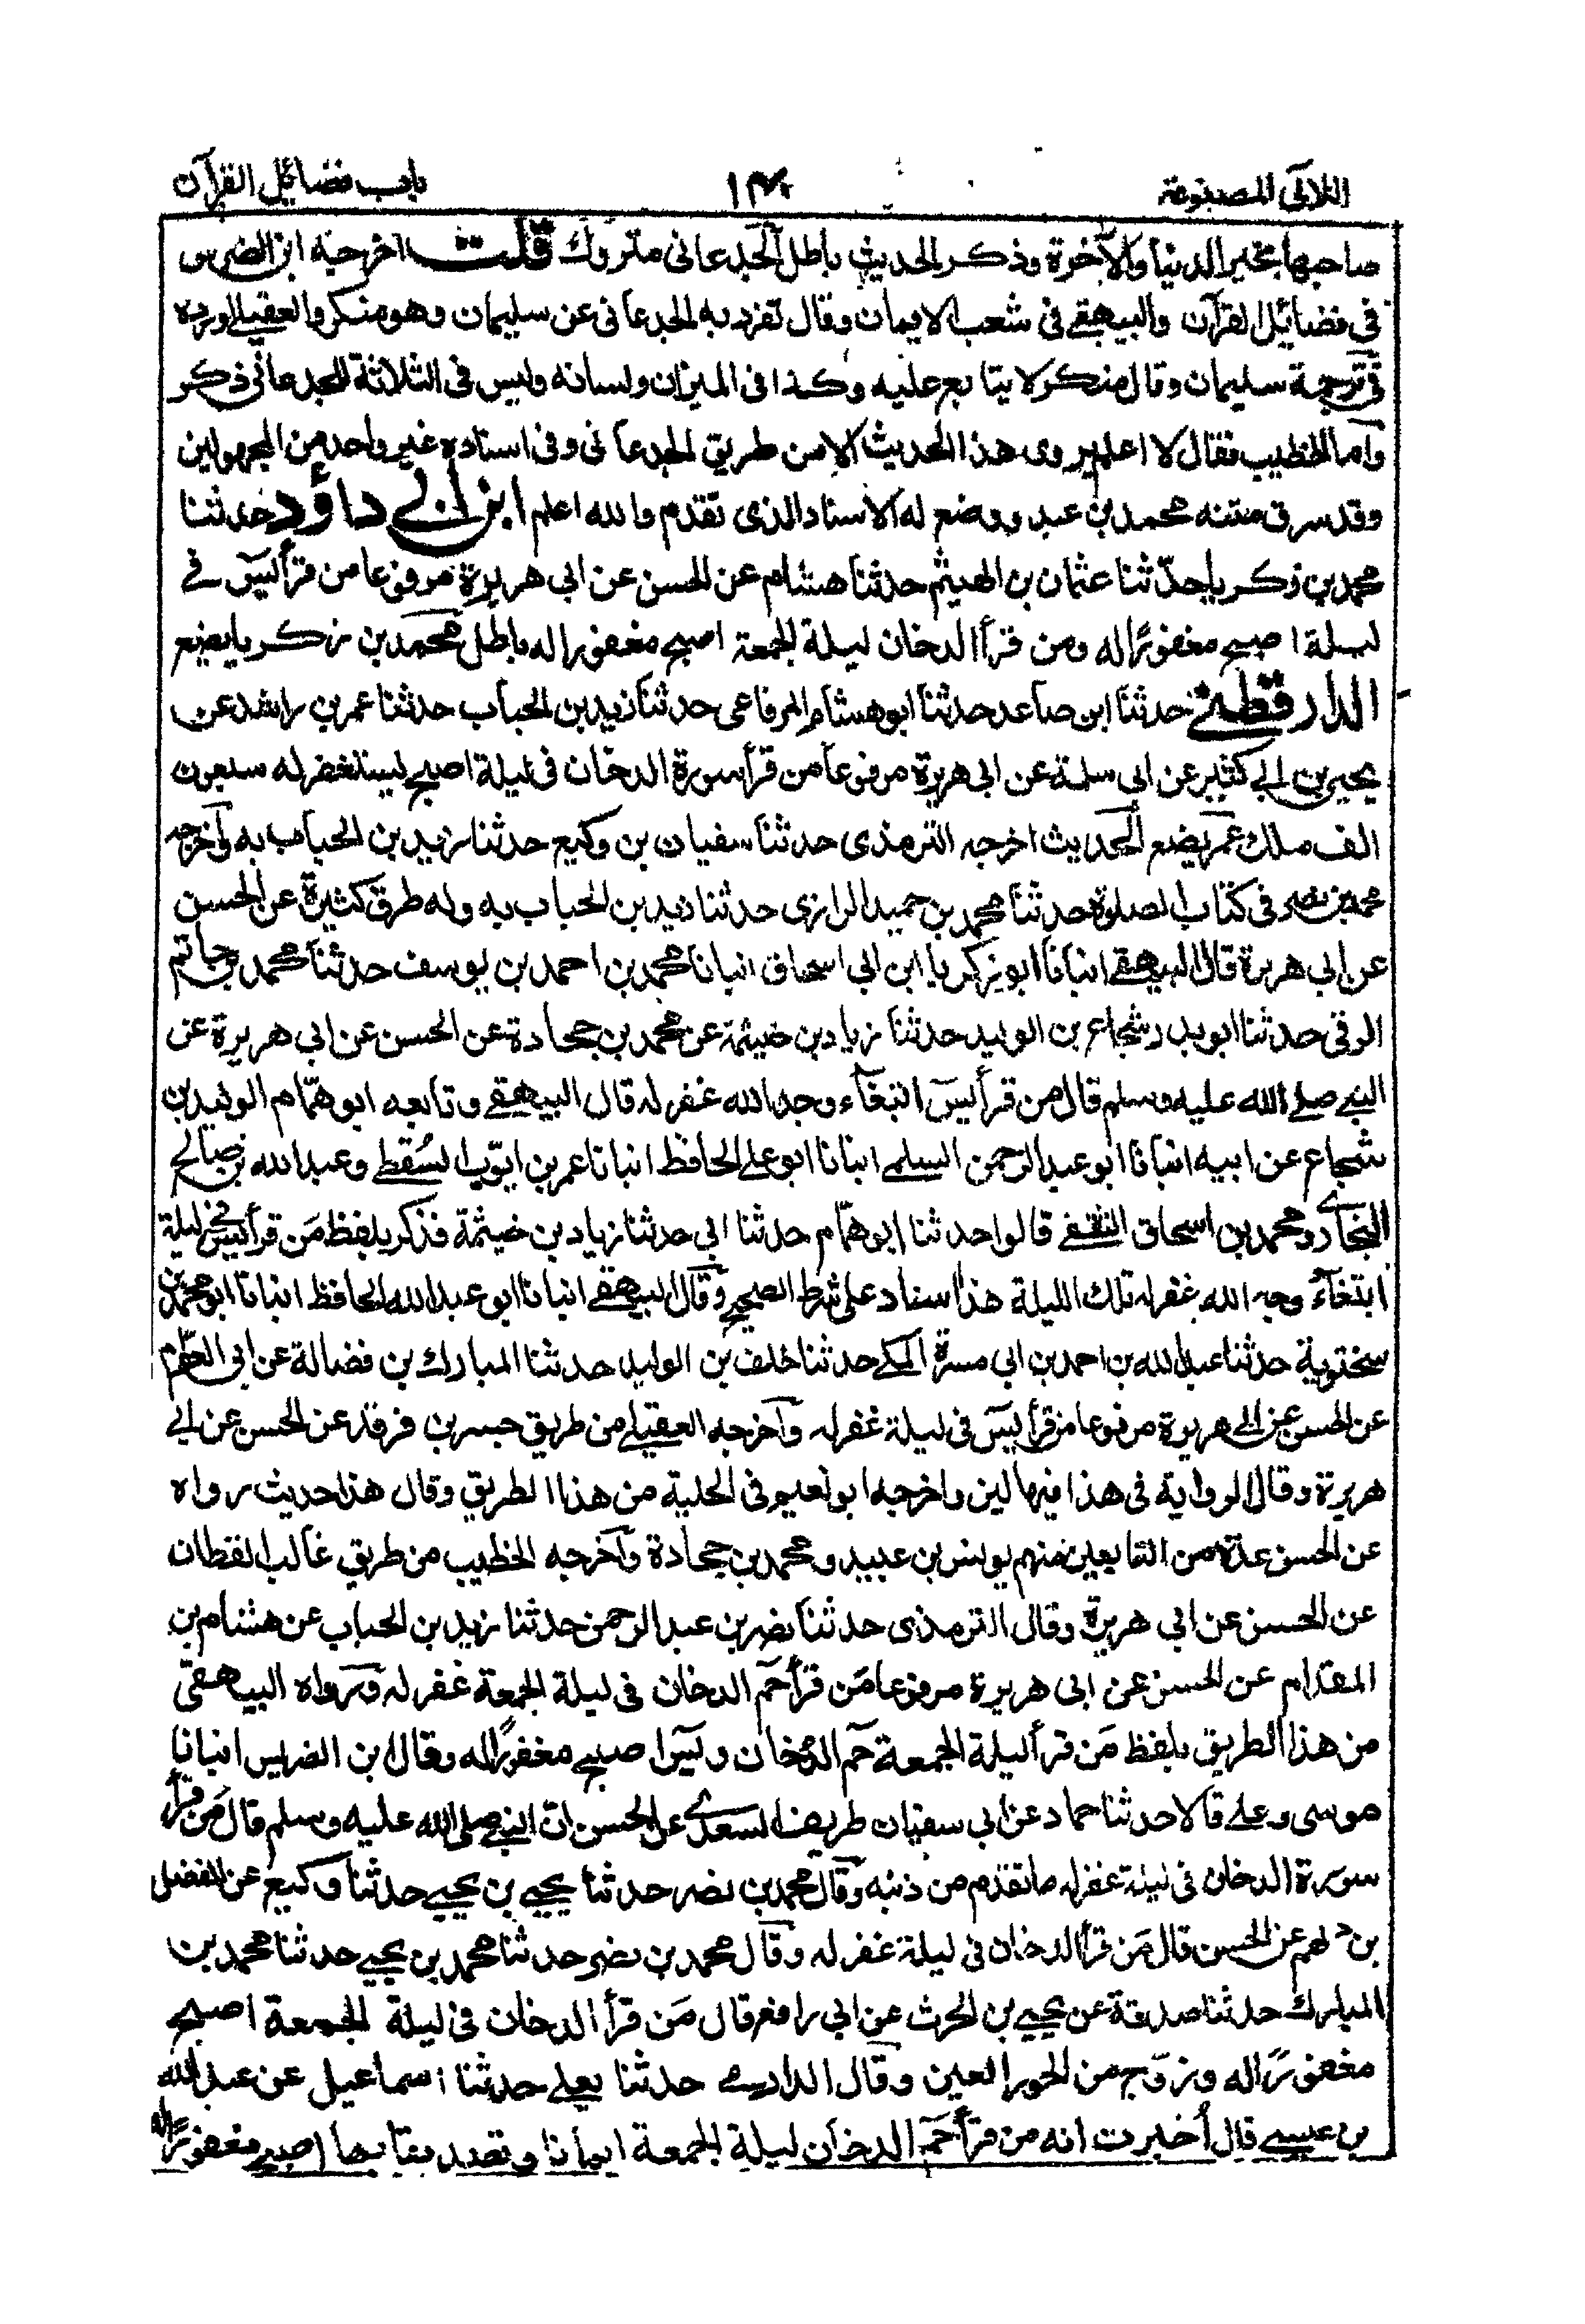 اللآلى المصنوعة
باب فضائل القرآن
صاحبها بخير الدنيا والآخرة وذكر الحديث باطل الجدعانى متروك قلت اخرجه ابن الضريس
فى فضائل القرآن والبيهقے فى شعب الايمان وقال تفرد به الجدعانى عن سليمان وهو منكر والعقيلے اورده
فى ترجمة سليمان وقال منكر لا يتابع عليه وكذا فى الميزان ولسانه وليس فى الثلاثة للجدعانى ذكر
وأما الخطيب فقال لا اعلم يروى هذا الحديث الا من طريق الجدعانى وفى اسناده غير واحد من المجهولين
وقد سرق متنه محمد بن عبد ووضع له الاسناد الذى تقدم والله اعلم ابن ابى داؤد حدثنا
محمد بن زكريا حدّثنا عثمان بن الهيثم حدثنا هشام عن الحسن عن ابى هريرة مرفوعا من قرأ يٰسٓ فے
ليلة اصبح مغفورًا له ومن قرأ الدخان ليلة الجمعة اصبح مغفورا له باطل محمد بن زكريا يضع
الدارقطنے حدثنا ابن صاعد حدثنا ابو هشام الرفاعى حدثنا زيد بن الحباب حدثنا عمر بن راشد عن
يحيى بن ابى كثير عن ابى سلمة عن ابى هريرة مرفوعا من قرأ سورة الدخان فى ليلة اصبح يستغفر له سبعون
الف ملك عمر يضع الحديث اخرجه الترمذى حدثنا سفيان بن وكيع حدثنا زيد بن الحباب به وأخرجه
محمد بن نصر فى كتاب الصلوة حدثنا محمد بن حميد الرازى حدثنا زيد بن الحباب به وله طرق كثيرة عن الحسن
عن ابى هريرة قال البيهقے انبانا ابو زكريا ابن ابى اسحاق انبانا محمد بن احمد بن يوسف حدثنا محمد بن حاتم
الرقى حدثنا ابو بدر شجاع بن الوليد حدثنا زياد بن خيثمة عن محمد بن جحادة عن الحسن عن ابى هريرة عن
النبے صلے الله عليه وسلم قال من قرأ يٰسٓ ابتغآء وجه الله غفر له قال البيهقے وتابعه ابو همّام الوليد بن
شجاع عن ابيه انبانا ابو عبد الرحمن السلمے انبانا ابو علے الحافظ انبانا عمر بن ايوب السقطے وعبد الله بن صالح
البخارے ومحمد بن اسحاق الثقفے قالوا حدثنا ابو همّام حدثنا ابى حدثنا زياد بن خيثمة فذكر بلفظ مَن قرأ يٰسٓ فى ليلة
ابتغآء وجه الله غفر له تلك الليلة هذا اسناد على شرط الصحيح وقال البيهقے انبانا ابو عبد الله الحافظ انبانا ابو محمد بن
سختوية حدثنا عبد الله بن احمد بن ابى مسرة المكے حدثنا خلف بن الوليد حدثنا المبارك بن فضالة عن ابى العوّام
عن الحسن عن ابى هريرة مرفوعا من قرأ يٰسٓ فى ليلة غفر له وأخرجه العقيلے من طريق جسر بن فرقد عن الحسن عن ابے
هريرة وقال الرواية فى هذا فيها لين واخرجه ابو نعيم فى الحلية من هذا الطريق وقال هذا حديث رواه
عن الحسن عدّة من التابعين منهم يونس بن عبيد ومحمد بن جحادة وأخرجه الخطيب من طريق غالب القطان
عن الحسن عن ابى هريرة وقال الترمذى حدثنا نصر بن عبد الرحمن حدثنا زيد بن الحباب عن هشام بن
المقدام عن الحسن عن ابى هريرة مرفوعا مَن قرأ حٰمٓ الدخان فى ليلة الجمعة غفر له ورواه البيهقى
من هذا الطريق بلفظ مَن قرأ ليلة الجمعة حٰمٓ الدخان ويٰسٓ اصبح مغفورًا له وقال ابن الضريس انبانا
موسى وعلے قالا حدثنا حماد عن ابى سفيان طريف السعدے عن الحسن انّ النبے صلى الله عليه وسلم قال مَن قرأ
سورة الدخان فى ليلة غفر له ما تقدم من ذنبه وقال محمد بن نصر حدثنا يحيے بن يحيے حدثنا وكيع عن الفضل
بن دلهم عن الحسن قال مَن قرأ الدخان فى ليلة غفر له وقال محمد بن نصر حدثنا محمد بن يحيے حدثنا محمد بن
المبارك حدثنا صدقة عن يحيے بن الحرث عن ابى رافع قال مَن قرأ الدخان فى ليلة الجمعة اصبح
مغفورًا له وزوّج من الحور العين وقال الدارمے حدثنا يعلے حدثنا اسماعيل عن عبد الله
بن عيسے قال أُخبرت انه من قرأ حٰمٓ الدخان ليلة الجمعة ايمانا وتصديقا بها اصبح مغفورًا له